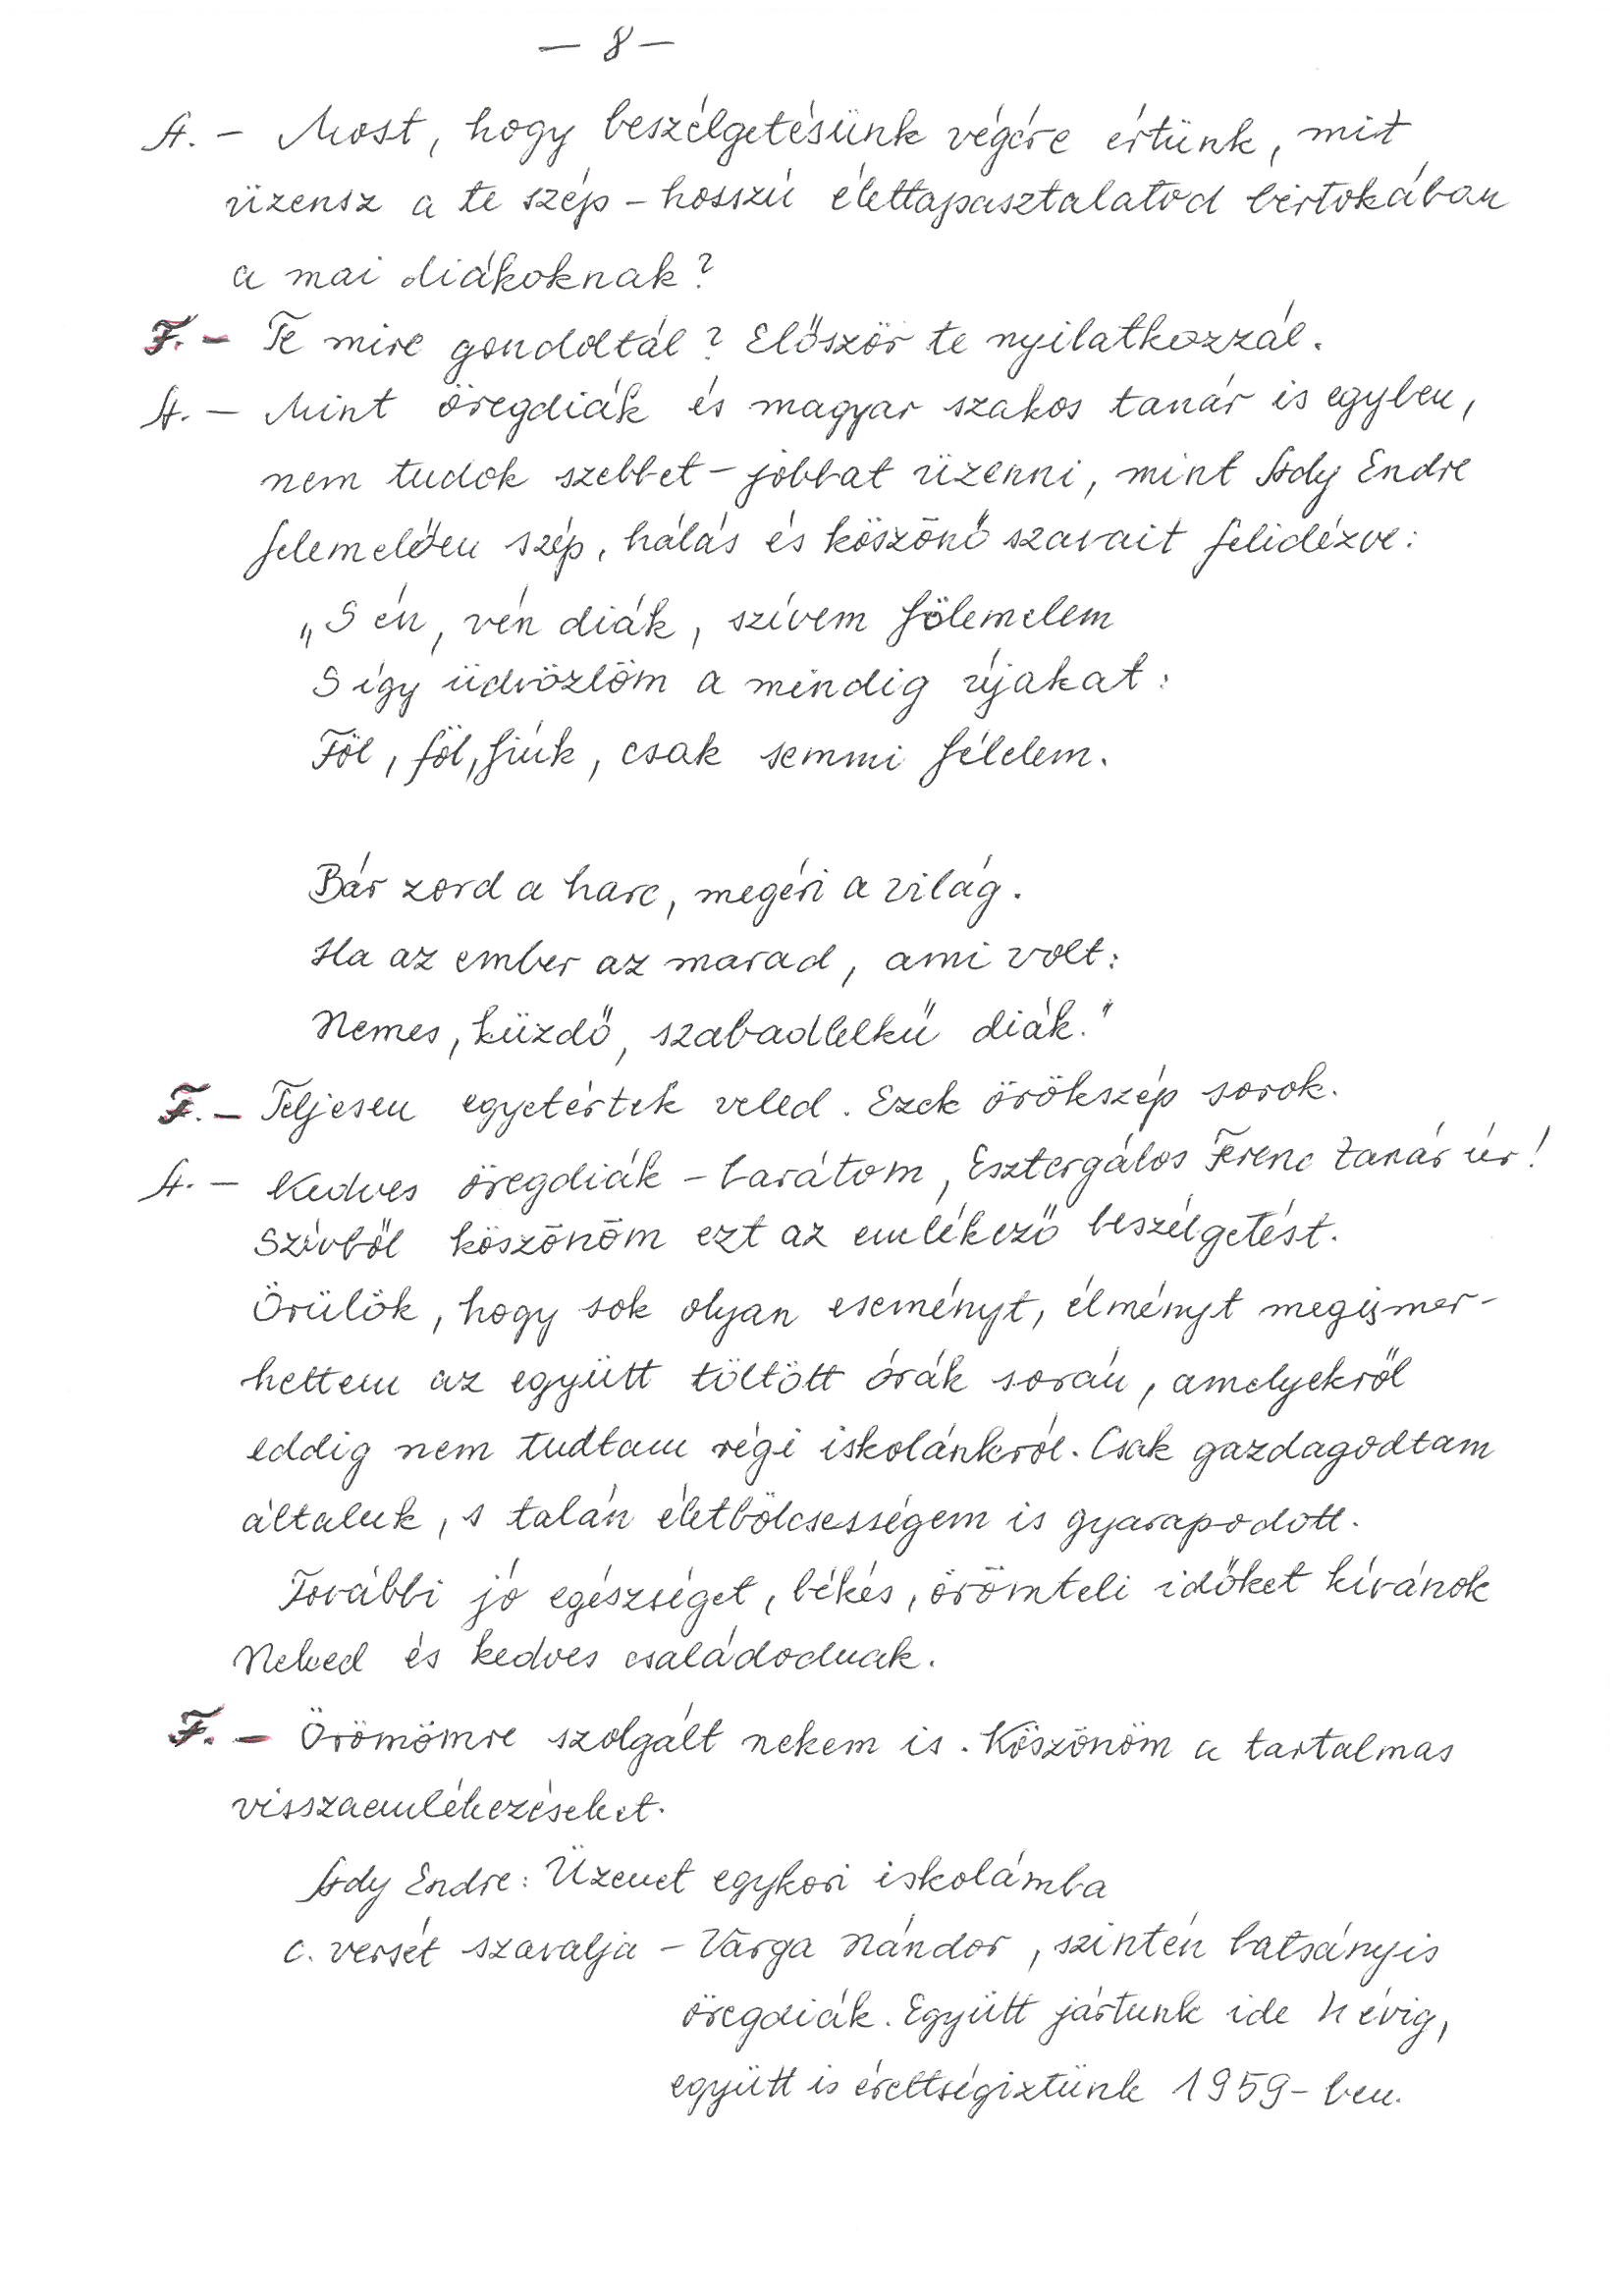 — 8 —
A. – Most, hogy beszélgetésünk végére értünk, mit
üzensz a te szép – hosszú élettapasztalatod birtokában
a mai diákoknak?
F. – Te mire gondoltál? Először te nyilatkozzál.
A. – Mint öregdiák és magyar szakos tanár is egyben,
nem tudok szebbet – jobbat üzenni, mint Ady Endre
felemelően szép, hálás és köszönő szavait felidézve:
„S én, vén diák, szívem fölemelem
S így üdvözlöm a mindig újakat:
Föl, föl, fiúk, csak semmi félelem.
Bár zord a harc, megéri a világ.
Ha az ember az marad, ami volt:
Nemes, küzdő, szabadlelkű diák."
F. – Teljesen egyetértek veled. Ezek örökszép sorok.
A. – Kedves öregdiák – barátom, Esztergálos Ferenc tanár úr!
Szívből köszönöm ezt az emlékező beszélgetést.
Örülök, hogy sok olyan eseményt, élményt megismer-
hettem az együtt töltött órák során, amelyekről
eddig nem tudtam régi iskolánkról. Csak gazdagodtam
általuk, s talán életbölcsességem is gyarapodott.
További jó egészséget, békés, örömteli időket kívánok
Neked és kedves családodnak.
F. – Örömömre szolgált nekem is. Köszönöm a tartalmas
visszaemlékezéseket.
Ady Endre: Üzenet egykori iskolámba
c. versét szavalja – Varga Nándor, szintén batsányis
öregdiák. Együtt jártunk ide 4 évig,
együtt is érettségiztünk 1959-ben.